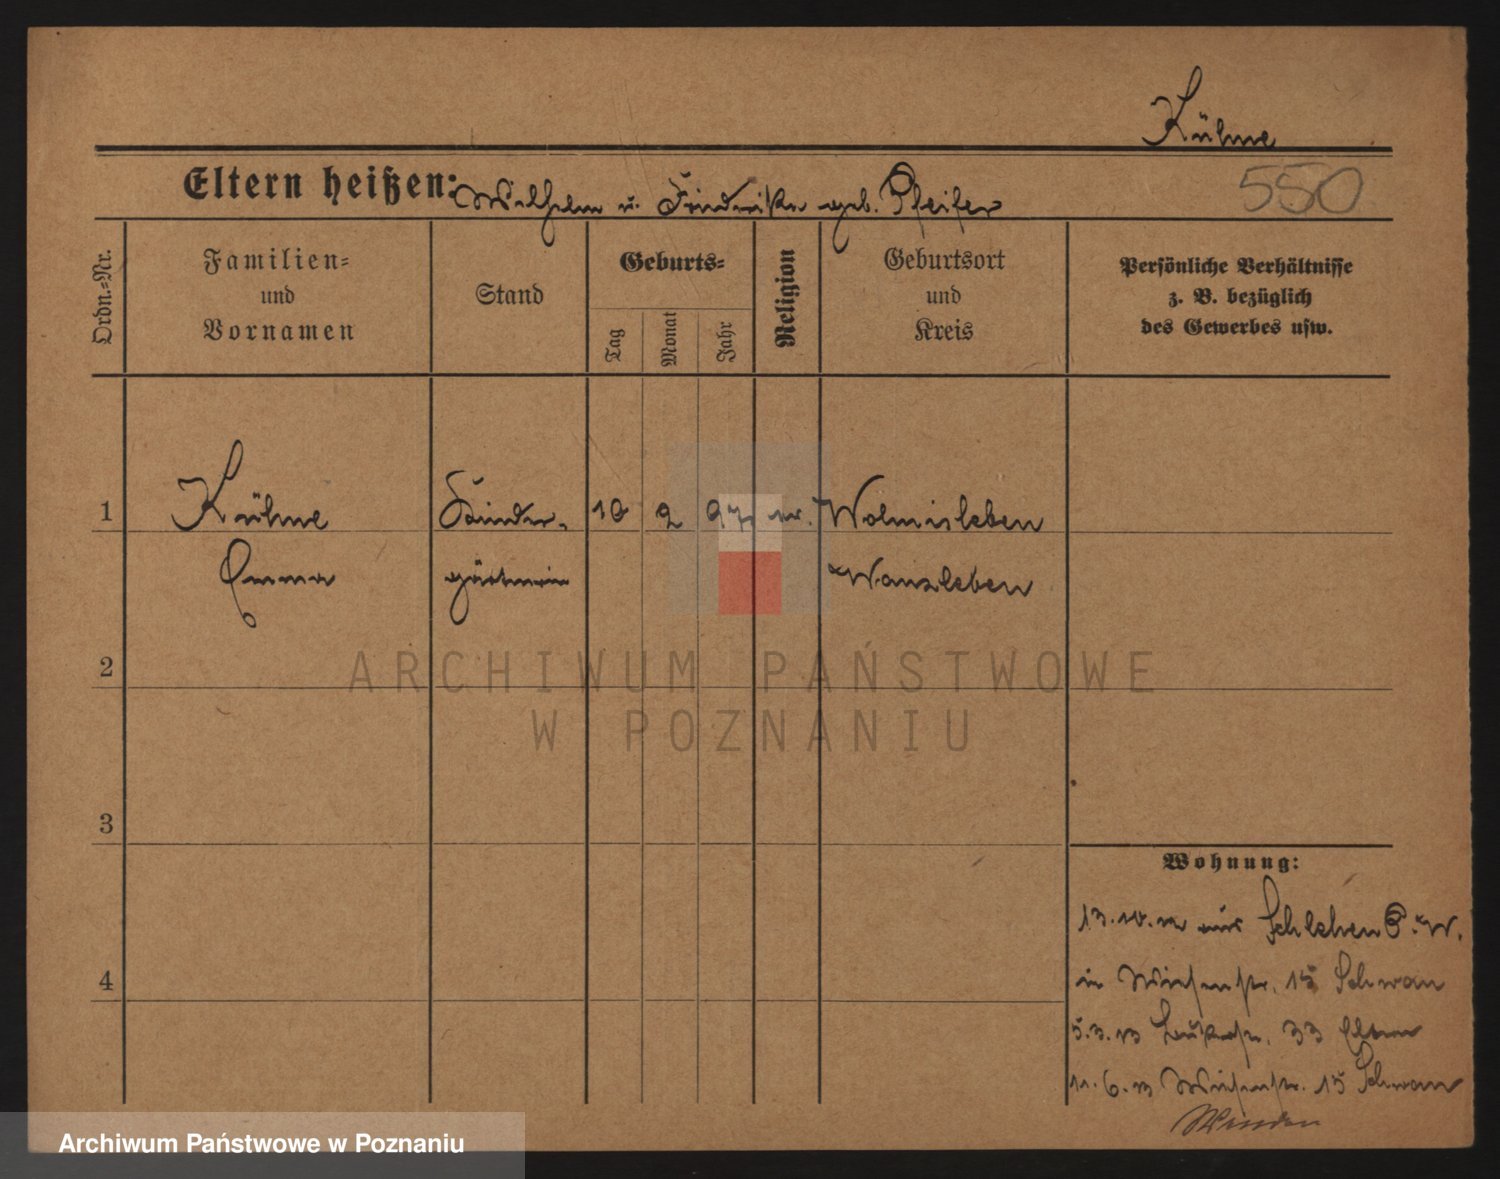 Kühne
Eltern heißen: Wilhelm u. Friederike geb. Pfeifer
550
Ordn.-Nr.
Familien- und Vornamen
Stand
Geburts-
Tag
Monat
Jahr
Religion
Geburtsort und Kreis
Persönliche Verhältnisse
z. B. bezüglich
des Gewerbes usw.
1 Kühne Kinder- 10 2 97 ev. Wolmirsleben
Emma gärtnerin Wanzleben
2
3
4
Wohnung:
13.10.12 aus Schlehen P.W.
in Wiesenstr. 15 Schwan
5.3.13 33 Eltern
11.6.13 Wiesenstr. 15 Schwan
ARCHIWUM PAŃSTWOWE
W POZNANIU
Archiwum Państwowe w Poznaniu